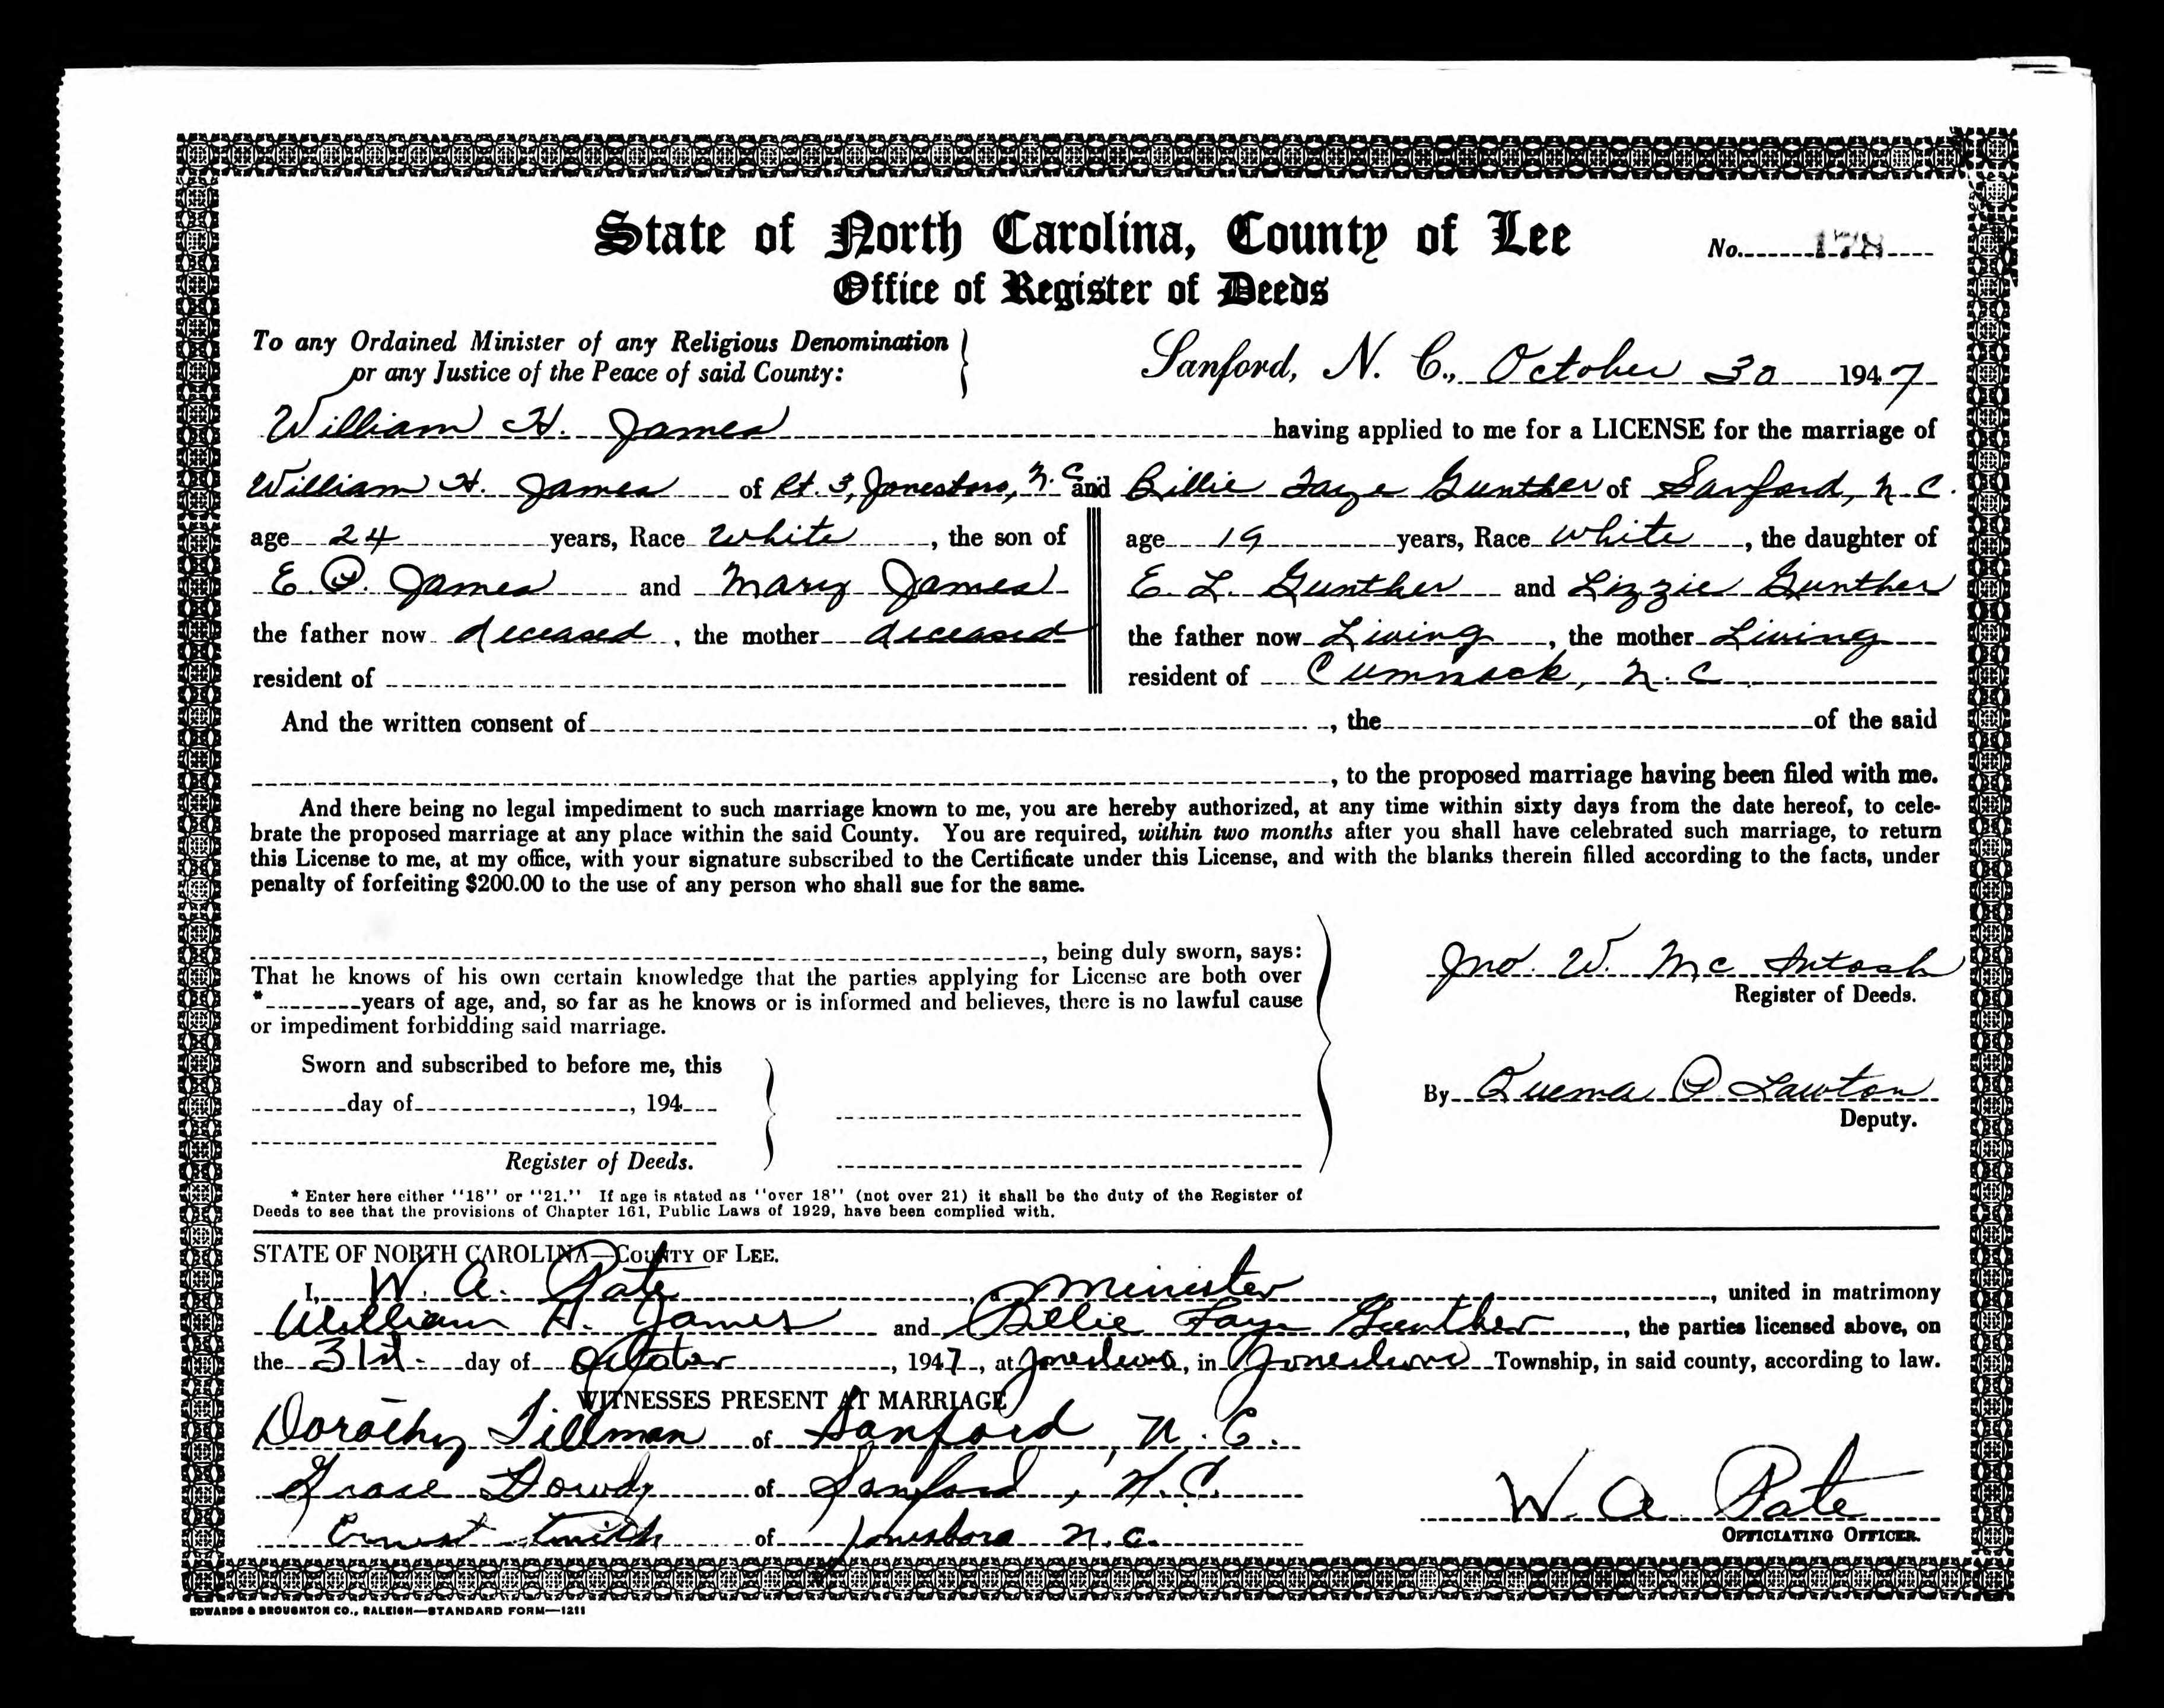 State of North Carolina, County of Lee
No. 178
Office of Register of Deeds
To any Ordained Minister of any Religious Denomination
or any Justice of the Peace of said County:
Sanford, N. C., October 30 1947
William H. James having applied to me for a LICENSE for the marriage of
William H. James of Rt. 3, Jonesboro, N. C. and Billie Faye Gunther of Sanford, N. C.
age 24 years, Race White, the son of
age 19 years, Race White, the daughter of
E. P. James and Mary James
E. L. Gunther and Lizzie Gunther
the father now deceased, the mother deceased
the father now Living, the mother Living
resident of
resident of Cumnock, N. C.
And the written consent of , the of the said
, to the proposed marriage having been filed with me.
And there being no legal impediment to such marriage known to me, you are hereby authorized, at any time within sixty days from the date hereof, to cele-
brate the proposed marriage at any place within the said County. You are required, within two months after you shall have celebrated such marriage, to return
this License to me, at my office, with your signature subscribed to the Certificate under this License, and with the blanks therein filled according to the facts, under
penalty of forfeiting $200.00 to the use of any person who shall sue for the same.
, being duly sworn, says:
That he knows of his own certain knowledge that the parties applying for License are both over
* years of age, and, so far as he knows or is informed and believes, there is no lawful cause
or impediment forbidding said marriage.
Jno. W. McIntosh
Register of Deeds.
Sworn and subscribed to before me, this
day of , 194
Register of Deeds.
By P. Lawton
Deputy.
* Enter here either "18" or "21." If age is stated as "over 18" (not over 21) it shall be the duty of the Register of
Deeds to see that the provisions of Chapter 161, Public Laws of 1929, have been complied with.
STATE OF NORTH CAROLINA—COUNTY OF LEE.
I, W. A. Pate, minister, united in matrimony
William H. James and Billie Faye Gunther, the parties licensed above, on
the 31st day of October, 1947, at Jonesboro, in Jonesboro Township, in said county, according to law.
WITNESSES PRESENT AT MARRIAGE
Dorothy Tillman of Sanford, N. C.
Grace Dowdy of Sanford, N. C.
Ernest Smith of Jonesboro N. C.
W. A. Pate
OFFICIATING OFFICER.
EDWARDS & BROUGHTON CO., RALEIGH—STANDARD FORM—1211